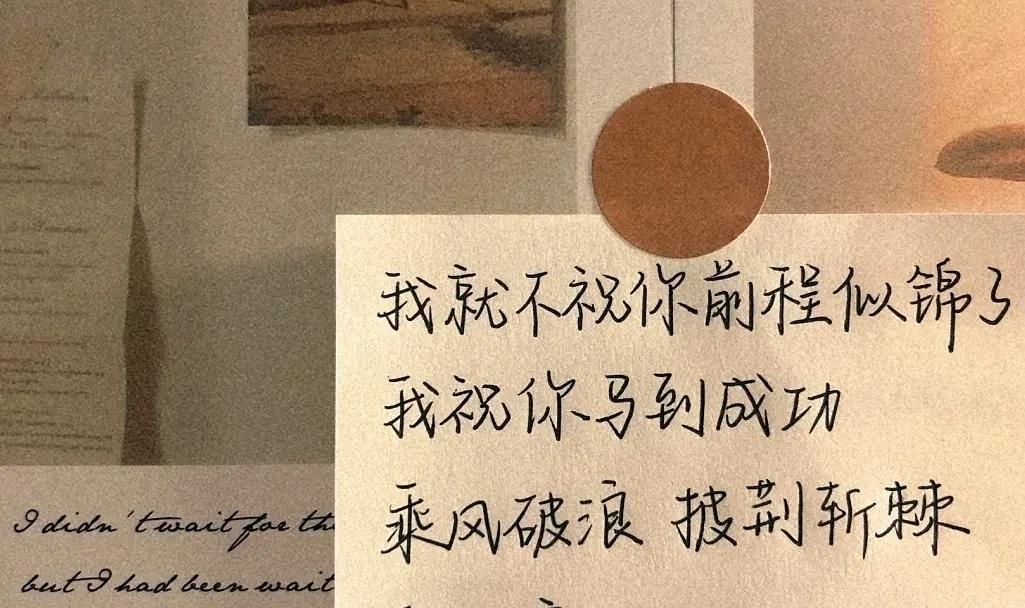 我就不祝你前程似锦了
我祝你马到成功
乘风破浪 披荆斩棘
I didn't wait for the
but I had been wait